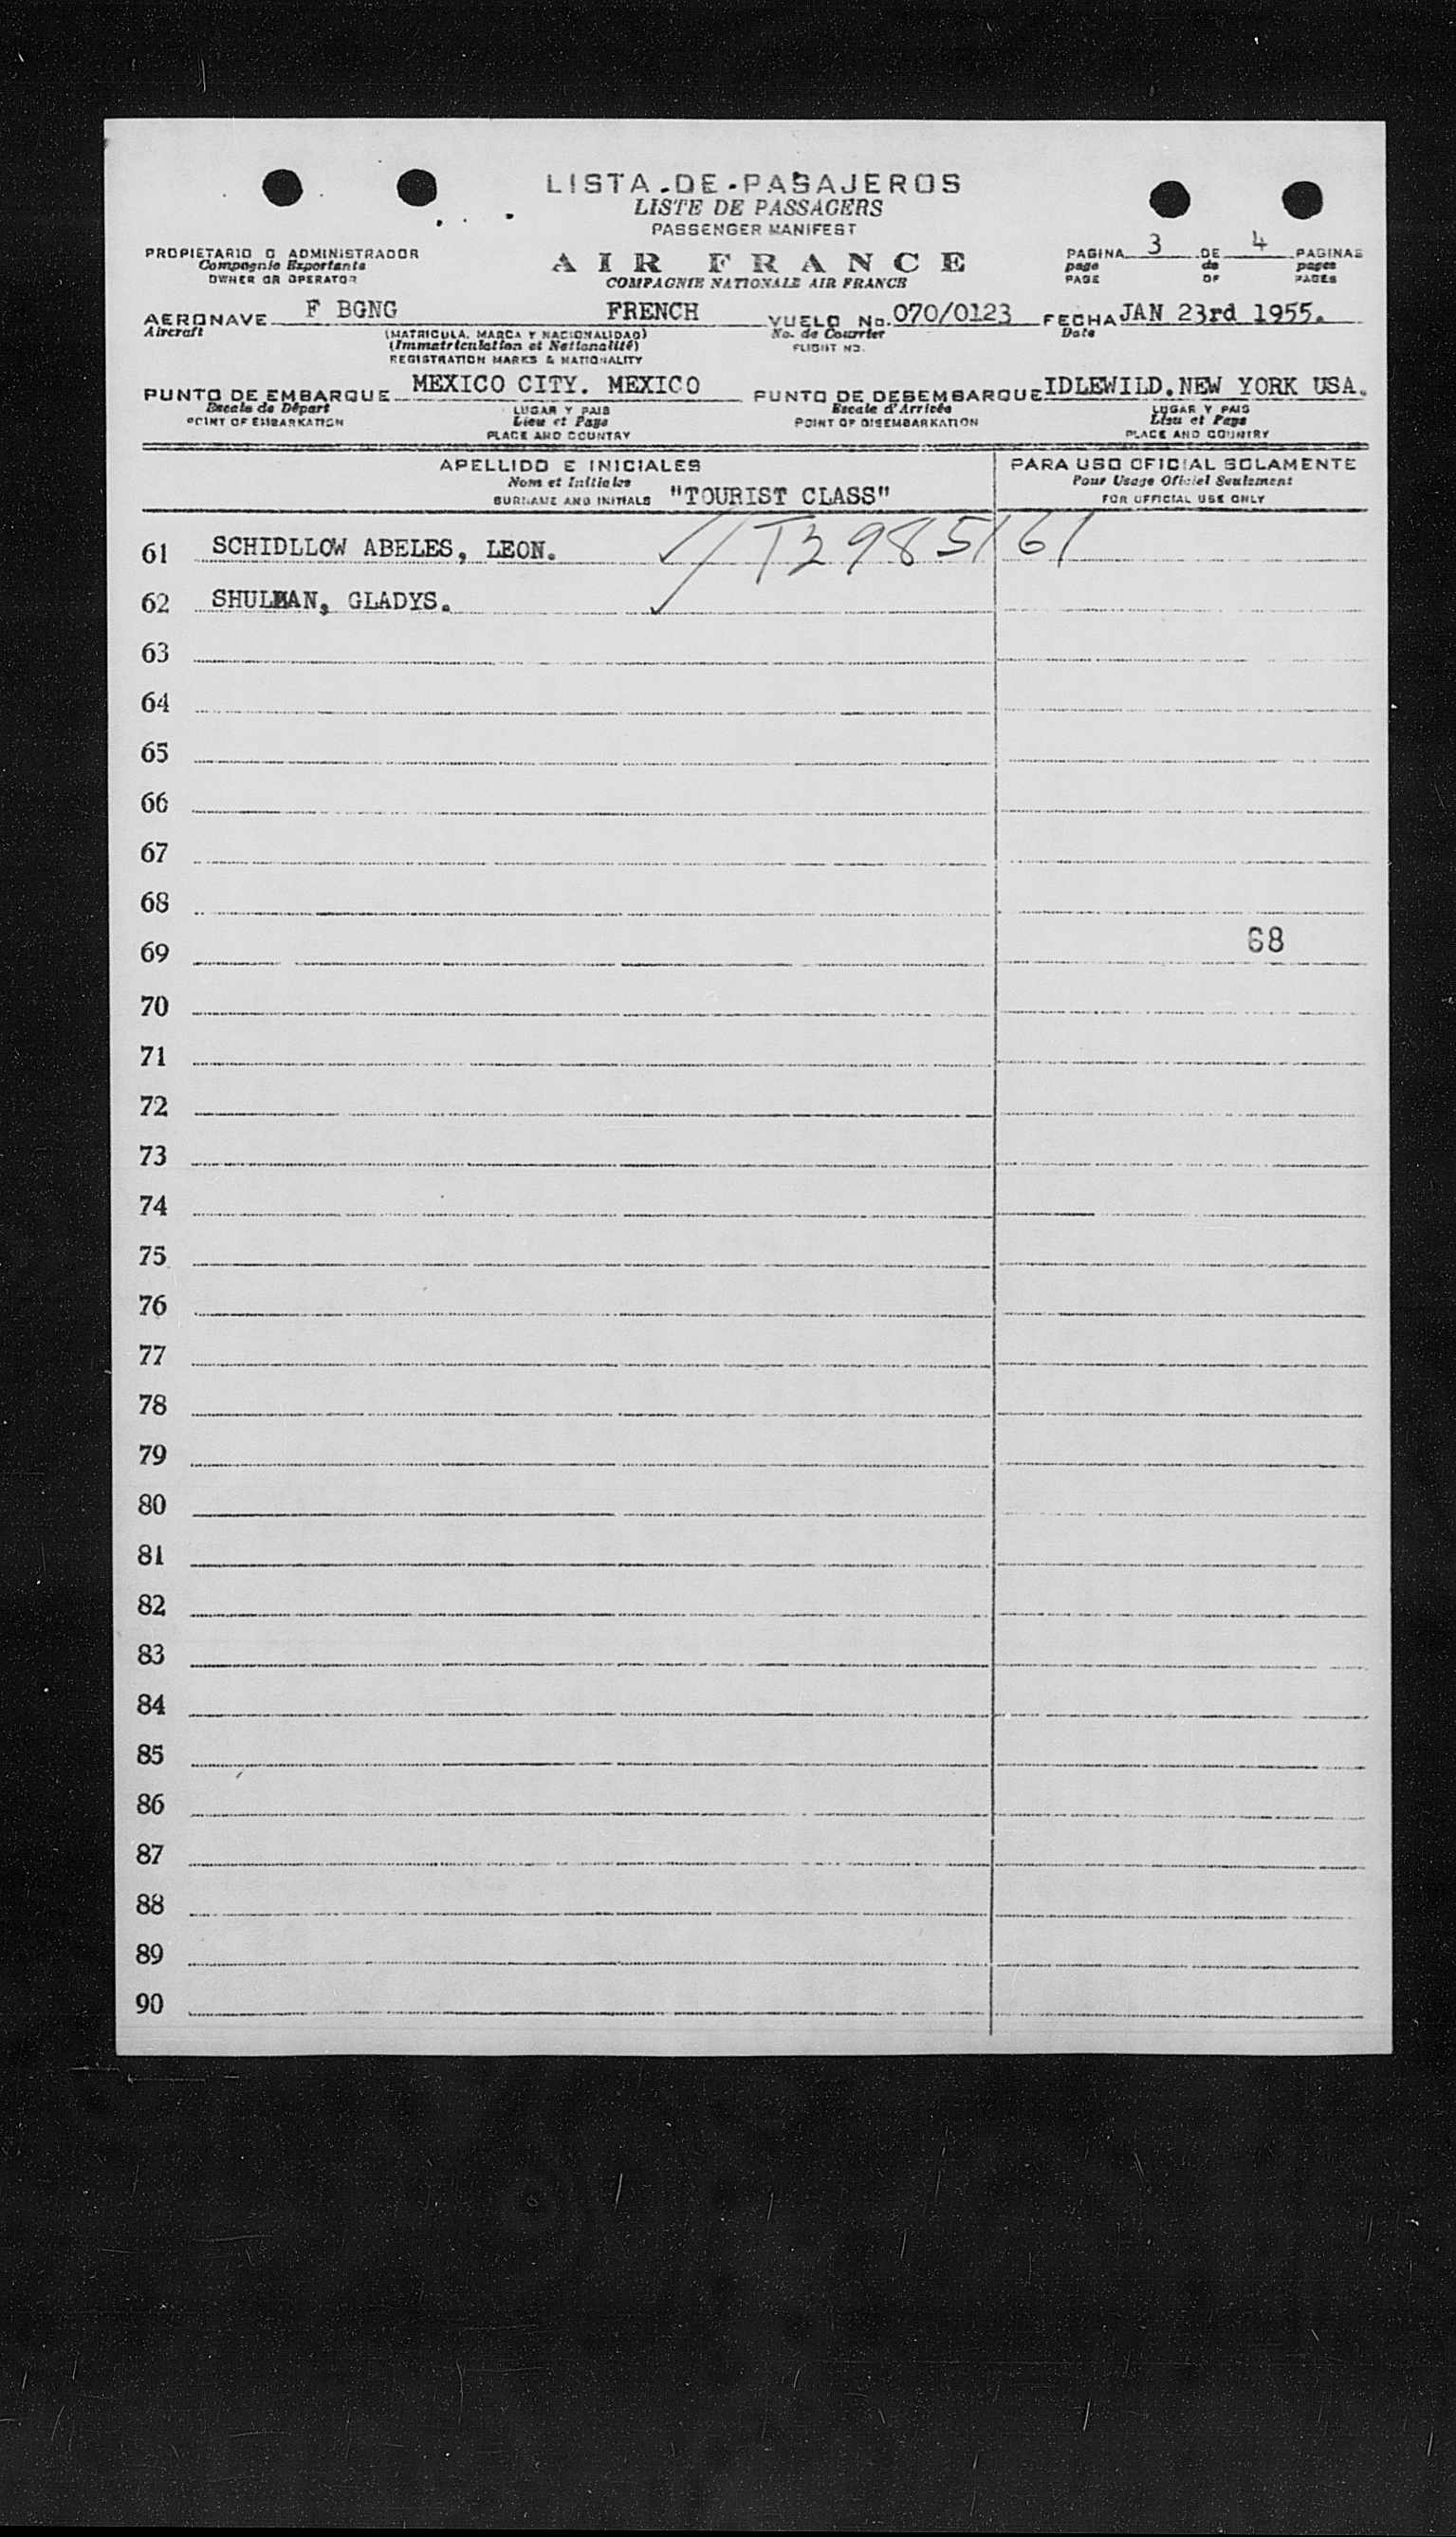 LISTA DE PASAJEROS
LISTE DE PASSAGERS
PASSENGER MANIFEST
PROPIETARIO O ADMINISTRADOR
Compagnie Exportante
OWNER OR OPERATOR
AIR FRANCE
COMPAGNIE NATIONALE AIR FRANCE
PAGINA 3 DE 4 PAGINAS
page de pages
PAGE OF PAGES
AERONAVE F BGNG FRENCH VUELO No. 070/0123 FECHA JAN 23rd 1955.
Aircraft (MATRICULA, MARCA Y NACIONALIDAD) No. de Courrier Date
(Immatriculation et Nationalité) FLIGHT NO.
REGISTRATION MARKS & NATIONALITY
PUNTO DE EMBARQUE MEXICO CITY. MEXICO PUNTO DE DESEMBARQUE IDLEWILD. NEW YORK USA.
Escale de Départ LUGAR Y PAIS Escale d'Arrivée LUGAR Y PAIS
POINT OF EMBARKATION Lieu et Pays POINT OF DISEMBARKATION Lieu et Pays
PLACE AND COUNTRY PLACE AND COUNTRY
APELLIDO E INICIALES PARA USO OFICIAL SOLAMENTE
Nom et Initiales Pour Usage Officiel Seulement
SURNAME AND INITIALS "TOURIST CLASS" FOR OFFICIAL USE ONLY
61 SCHIDLLOW ABELES, LEON. T2985161
62 SHULMAN, GLADYS.
63
64
65
66
67
68
69 68
70
71
72
73
74
75
76
77
78
79
80
81
82
83
84
85
86
87
88
89
90